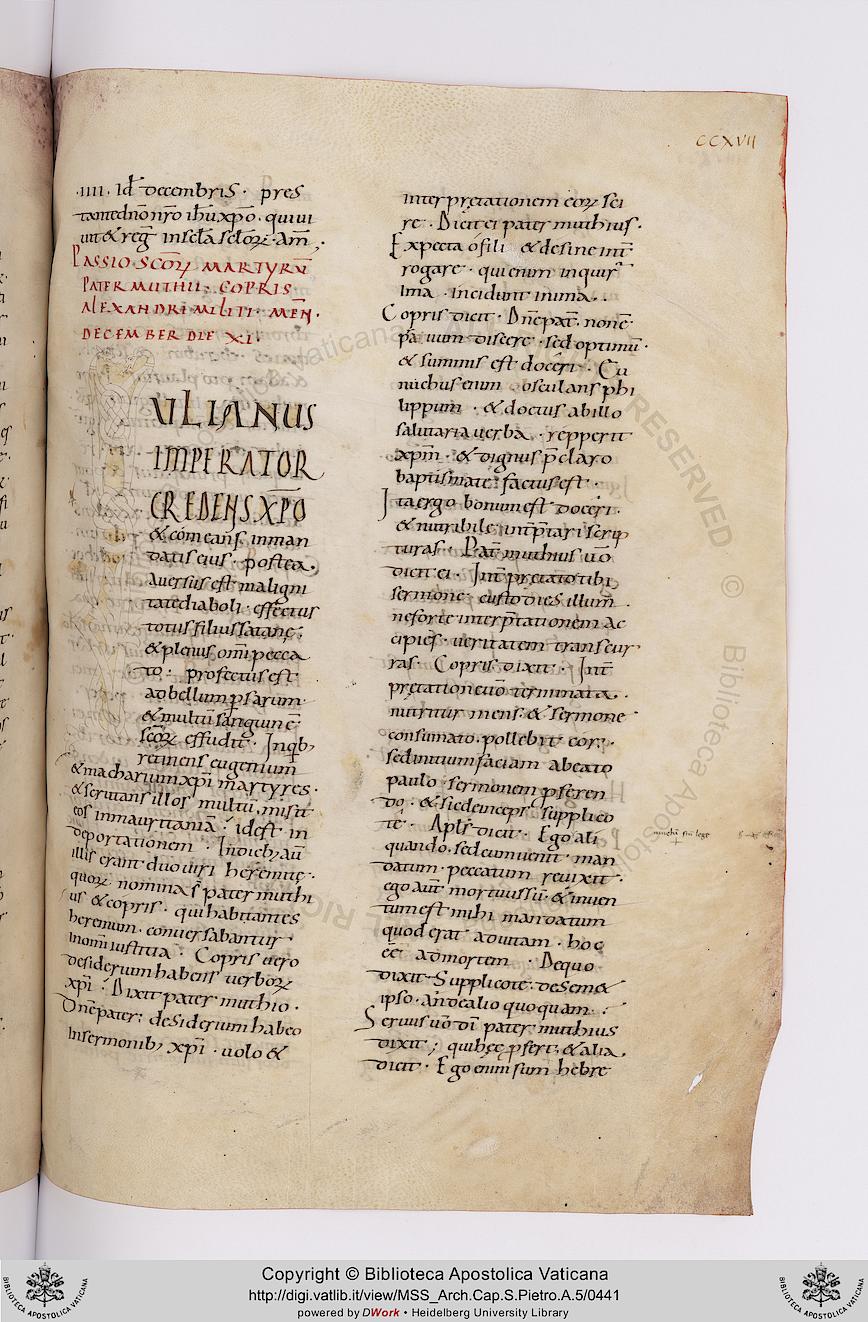 CCXVII
·IIII· Id̄ decembris· pres
tante dn̄o nr̄o ih̄u xp̄o· qui ui
uit & reg̅ in sc̄la sc̄lorꝝ· Am̅·
PASSIO· SC̄Orꝝ MARTYRŪ
PATERMUTHII· COPRIS·
ALEXANDRI MILITI· MEN̄·
DECEMBER DIE XI·
ULIANUS
IMPERATOR
CREDENS· XP̄O
& comeans in man
datis eius· postea·
auersus est maligni
tate diaboli· effectus
totus filius satanę;
& plenus om̅i pecca
to· profectus est
ad bellum ꝑsarum·
& multū sanguinē·
sc̄orꝝ effudit̄· In q̇b;
retinens eugenium
& macharium xp̄i martyres·
& seruans illos multū· misit
eos in mauritaniā· idest in
deportationem· In dieb; au̅
illis erant duo uiri herēmitę·
quorꝝ nomina s̄ pater muthi
us & copris· qui habitantes
heremum· conuersabantur
in om̅i iustitia· Copris uero
desiderium habens uerborꝝ
xp̄i· Dixit pater muthio·
Dn̅e pater; desiderium habeo
in sermonib; xp̄i· uolo &
interpr̨etationem eorꝝ sci
re· Dicit ei pater muthius·
Expecta o fili & desine int̅
rogare· qui enim inquir̅
ima· incidunt in ima·
Copris dicit· Dn̅e pat̅· non ē·
p̄auum discere· sed optimū·
& summis est doceri· Eu
nuchus enim osculans phi
lippum· & doctus ab illo
salutaria uerba· repperit
xp̄m· & dignus p̄claro
baptismate· factus est·
Ita ergo bonum est doceri·
& nutribile int̅p̄tari scrip
turas· Pat̅ muthius u̅o
dicit ei· Int̅pr̨etatio tibi
sermone· custodies illum̅·
ne forte interp̄tationem ac
cipies· ueritatem transcur
ras· Copris dixit· Int̅
pr̨etatione u̅o terminata·
nutritur mens· & sermone
consumato· pollebit cor·
sed initium faciam a beato
paulo· sermonem ꝓferen
do· & sic deinceps· supplico
te· Apl̅s dicit· Ego ali
quando· sed cum uenit man
datum· peccatum reuixit·
ego aut̅ mortuus sū· & inuen
tum est mihi mandatum
quod erat ad uitam· hoc
ēē ad mortem· De quo
dixit· Supplico te· de sem&
ipso· an de alio quoquam·
Seruus u̅o dī pater muthius
dixit; qui hęc ꝓfert· & alia·
dicit· Ego enim sum hebre
Copyright © Biblioteca Apostolica Vaticana
http://digi.vatlib.it/view/MSS_Arch.Cap.S.Pietro.A.5/0441
powered by DWork • Heidelberg University Library
BIBLIOTECA APOSTOLICA VATICANA
BIBLIOTECA APOSTOLICA VATICANA